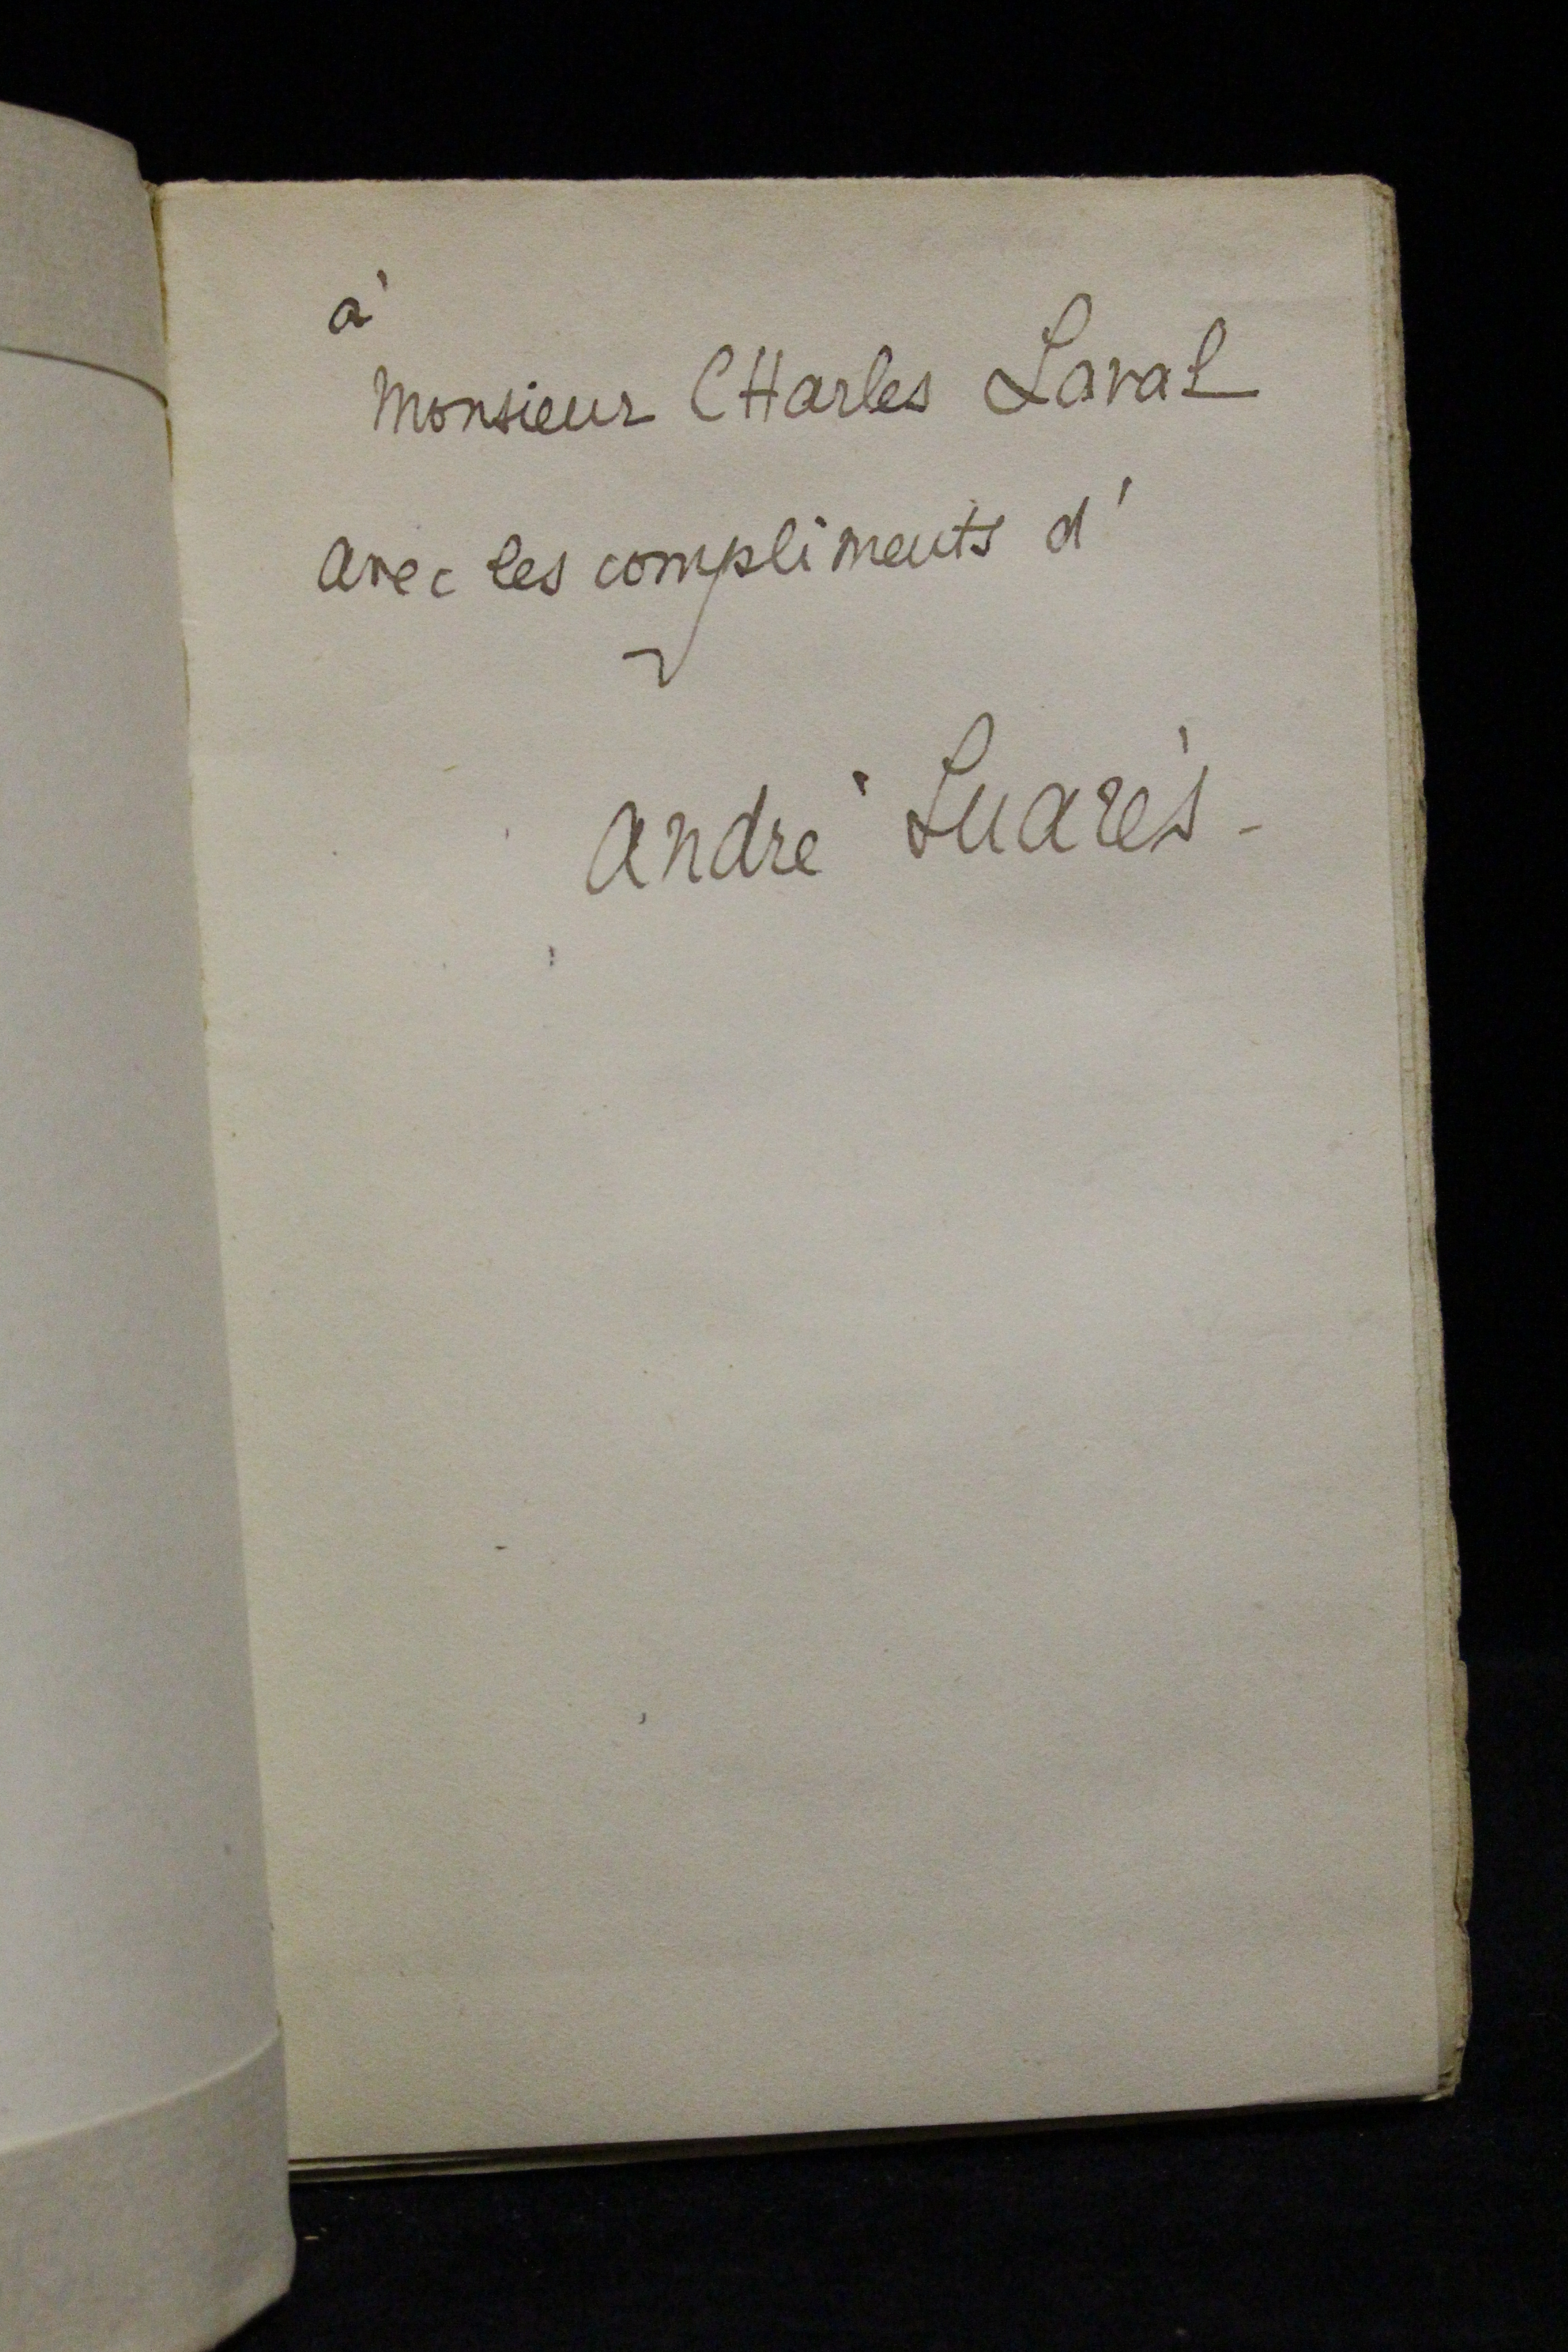 à
Monsieur CHarles Laval
avec les compliments d'
André Suarès -